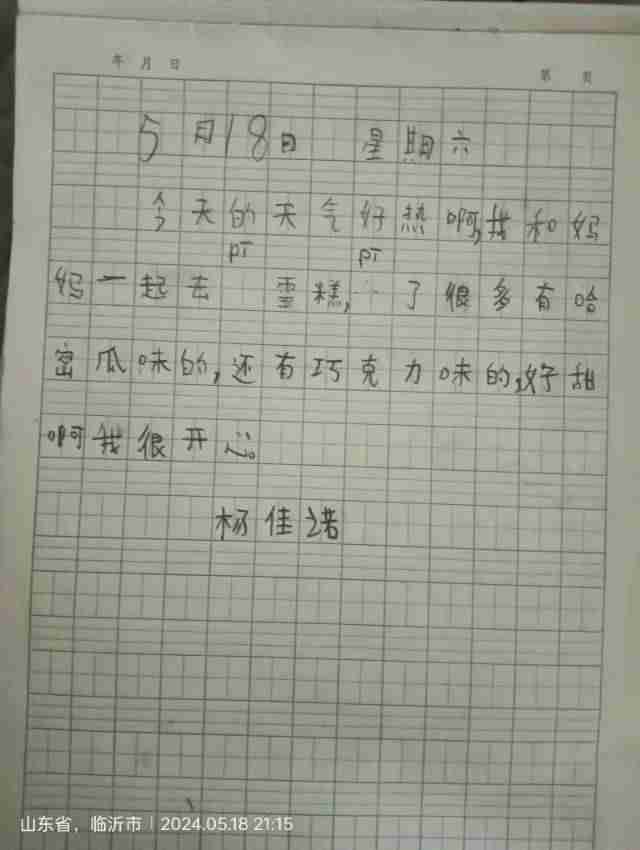 年 月 日 第 页
5月18日 星期六
今天的天气好热啊,我和妈
pī pī
妈一起去 雪糕, 了很多有哈
密瓜味的,还有巧克力味的,好甜
啊我很开心。
杨佳诺
山东省，临沂市 | 2024.05.18 21:15